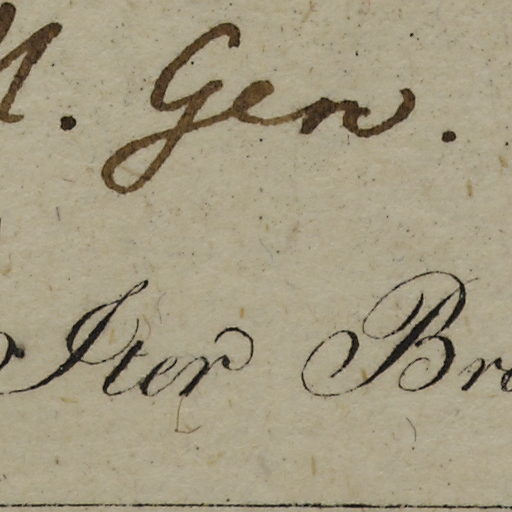 M. Gen.
Iter Br